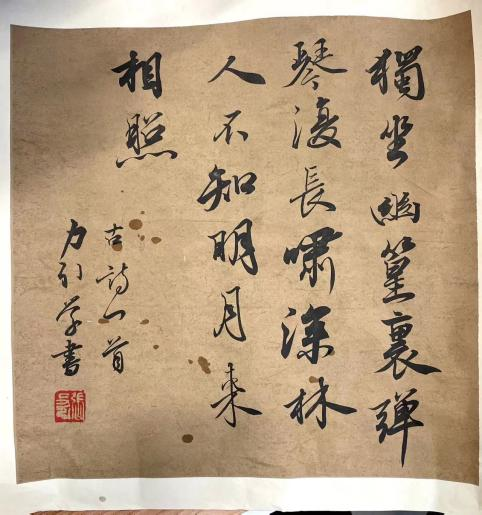 獨坐幽篁裏彈
琴復長嘯深林
人不知明月來
相照
古詩一首
力行学書